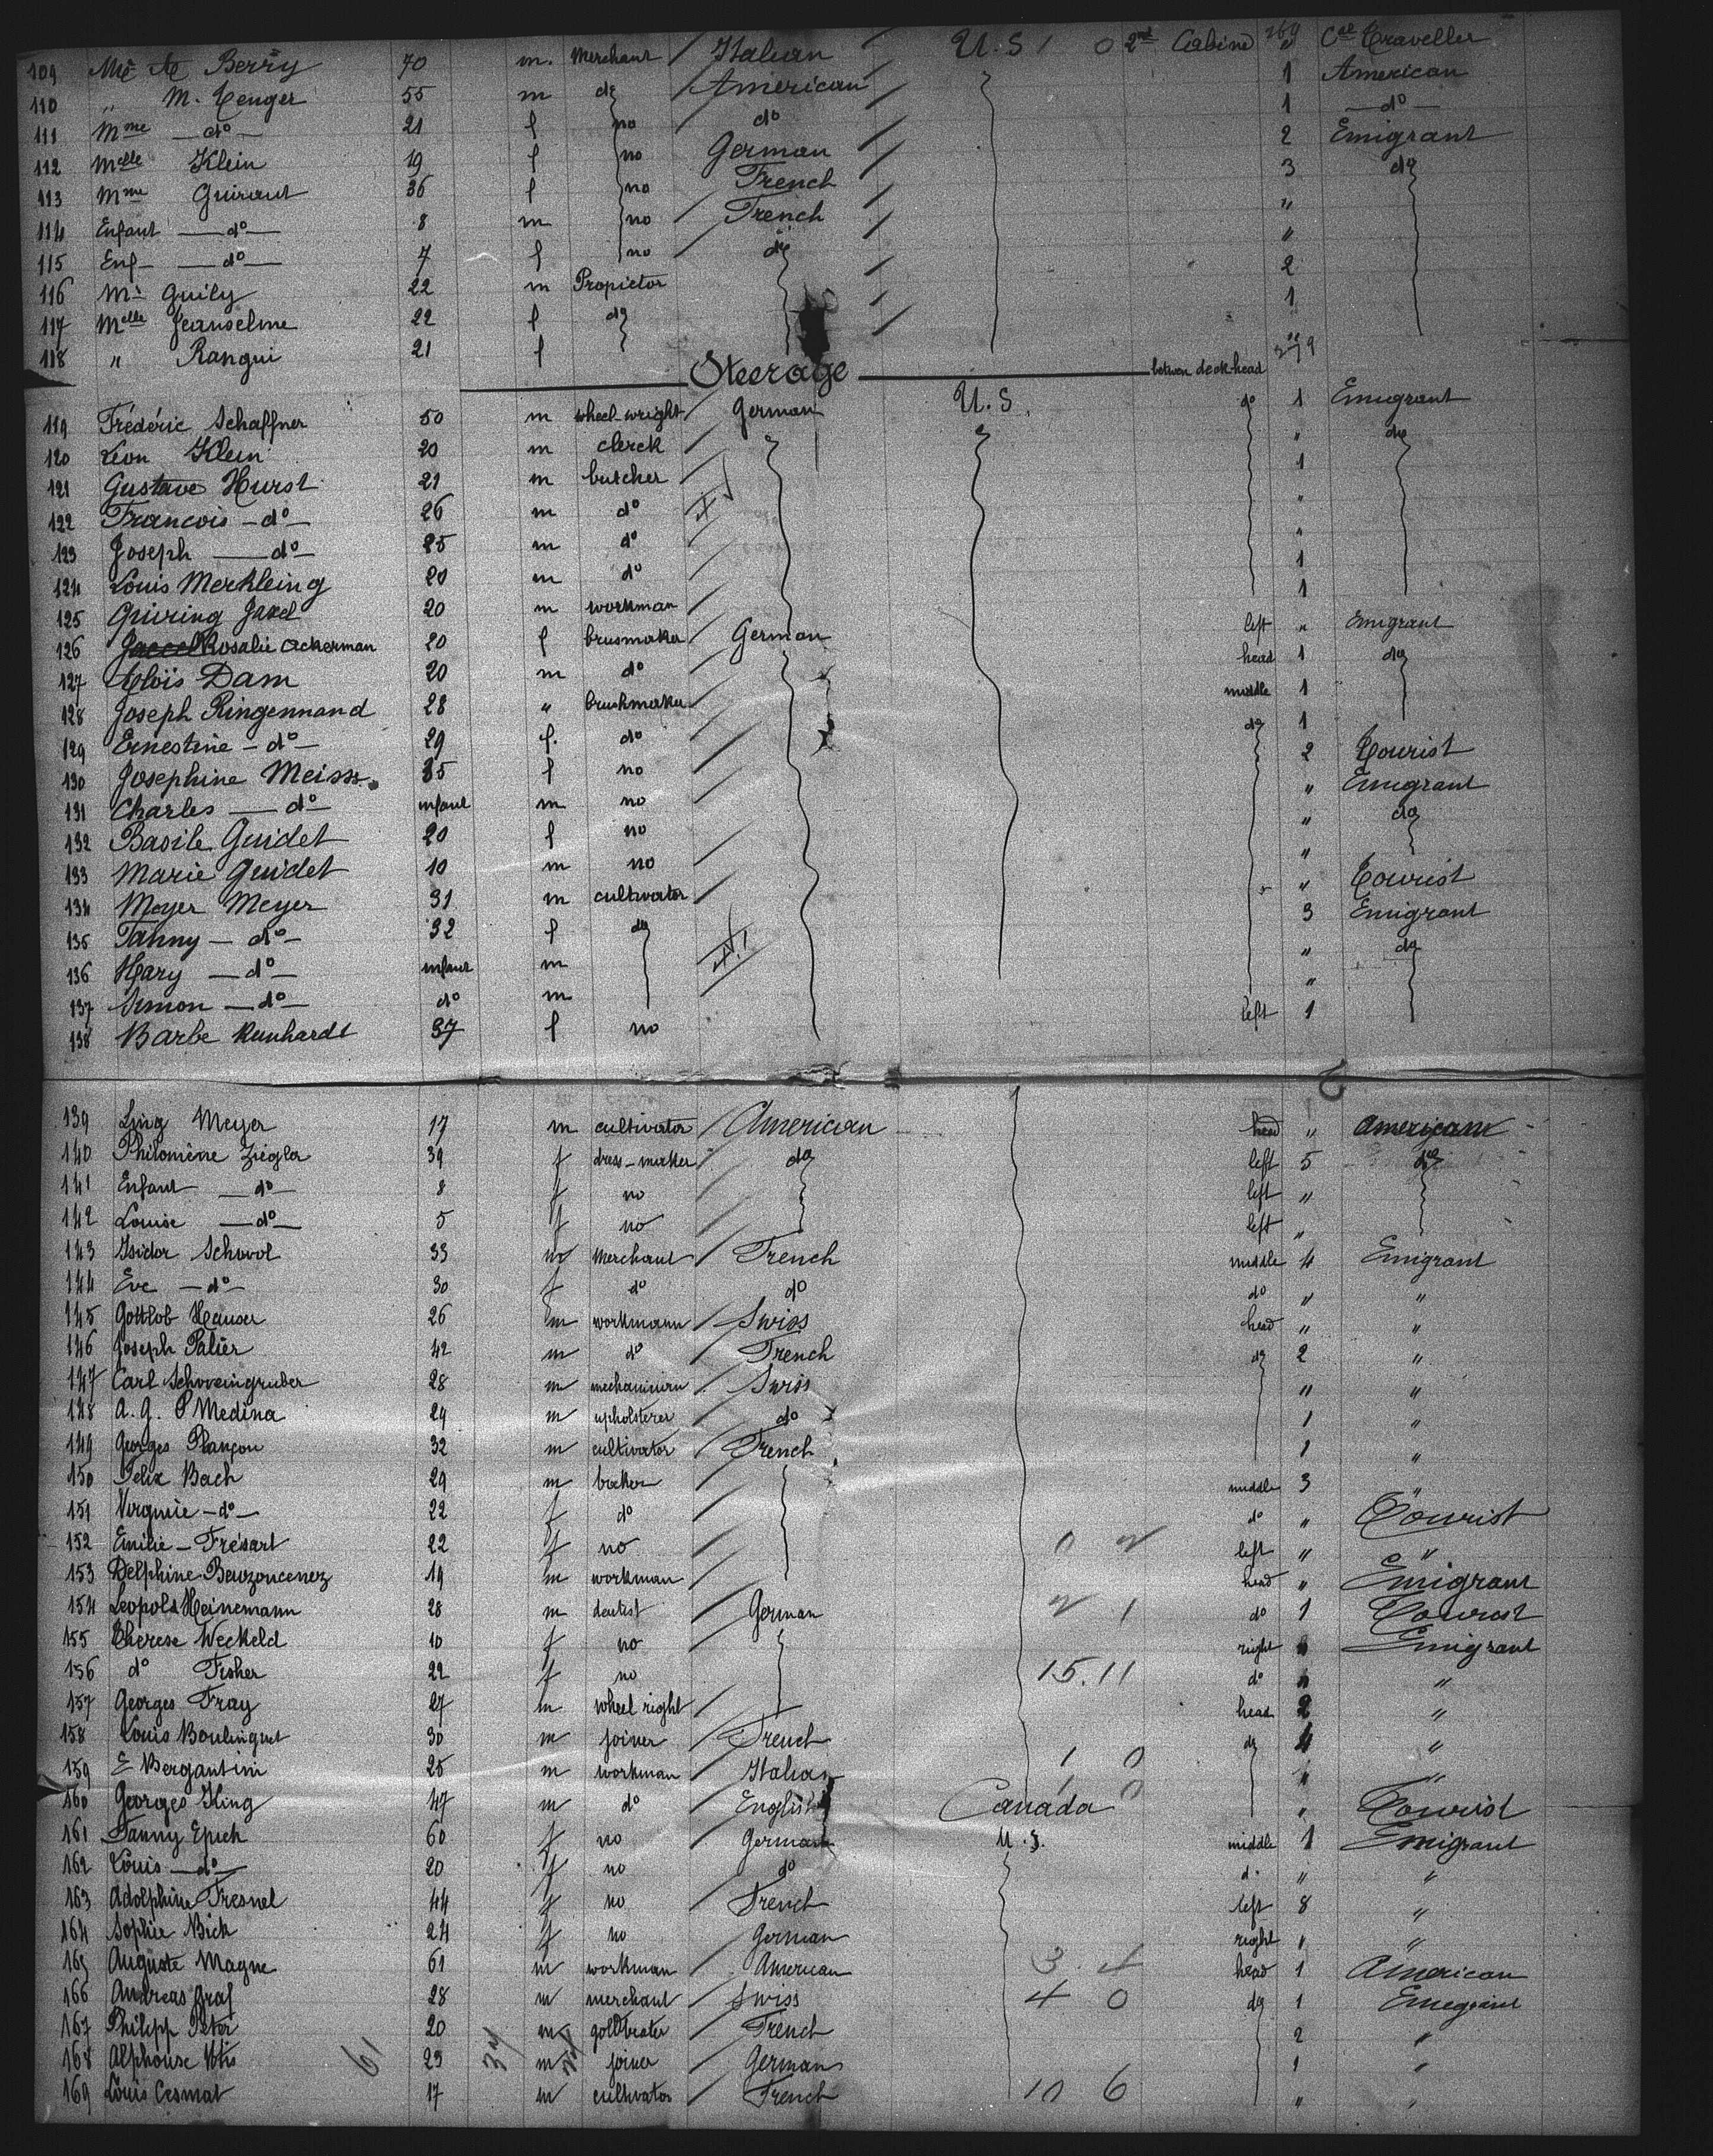 109 Mr A Berry 70 m. Merchant Italian U.S 2nd Cabine Cal Traveller
110 " M. Tenger 55 m do American 1 American
111 Mme — do — 21 f no do 1 — do —
112 Melle Klein 19 f no German 2 Emigrant
113 Mme Guiraut 36 f no French 3 do
114 Enfant — do — 8 m no French "
115 Enf — do — 7 f no do "
116 Mr Guily 22 m Propietor 2
117 Melle Jeanselme 22 f do 1
118 " Rangui 21 f
Steerage betwen deck-head
119 Frédéric Schaffner 50 m wheel-wright German U.S. do 1 Emigrant
120 Léon Klein 20 m clerck " do
121 Gustave Hurst 21 m butcher 1
122 Francois — do — 26 m do "
123 Joseph — do — 25 m do "
124 Louis Merkleing 20 m do 1
125 Quiring Jaxel 20 m workman 1
126 Rosalie Ackerman 20 f brusmaker German left " Emigrant
127 Aloïs Dam 20 m do head 1 do
128 Joseph Ringennand 28 " brushmaker middle 1
129 Ernestine — do — 29 f. do do 1
130 Josephine Meiss 35 f no 2 Tourist
131 Charles — do — infant m no " Emigrant
132 Basile Guidet 20 f no " do
133 Marie Guidet 10 m no "
134 Meyer Meyer 31 m cultivator " Tourist
135 Fanny — do — 32 f do 3 Emigrant
136 Hary — do — infant m " do
137 Simon — do — do m "
138 Barbe Runhardt 37 f no left 1
139 Ling Meyer 17 m cultivator American head " American
140 Philomène Ziegler 39 f dress-maker do left 5 do
141 Enfant — do — 8 f no left "
142 Louise — do — 5 f no left "
143 Isidor Schwol 33 m Merchant French middle 4 Emigrant
144 Eve — do — 30 f do do do " "
145 Gottlob Hauser 26 m workmann Swiss head " "
146 Joseph Palier 42 m do French do 2 "
147 Carl Schweingruber 28 m mechanicien Swiss " "
148 A. G. P Medina 29 m upholsterer do 1 "
149 Georges Plançon 32 m cultivator French 1 "
150 Felix Bach 29 m backer middle 3 "
151 Virginie — do — 22 f do do " Tourist
152 Emilie — Frésart 22 f no left " "
153 Delphine 19 m workman head " Emigrant
154 Leopold Heinemann 28 m dentist German do 1 Tourist
155 Therese Weckeld 10 f no right Emigrant
156 do Fisher 22 f no 15.11 do "
157 Georges Fray 27 m wheel right head 2 "
158 Louis Boulinguet 30 m joiner French do 4 "
159 E Bergantini 25 m workman Italian 1 0 " "
160 Georges King 47 m do English Canada " Tourist
161 Fanny Epich 60 f no German U.S. middle 1 Emigrant
162 Louis — do — 20 f no do do " "
163 Adolphine Fresnel 44 f no French left 8 "
164 Sophie Bick 24 f no German right " "
165 Auguste Magne 61 m workman American head 1 American
166 Andreas Graf 28 m merchant Swiss 4 0 do 1 Emegrant
167 Philipp Peter 20 m goldbeater French 2 "
168 Alphonse 29 m joiner German 1 "
169 Louis Cesmat 17 m cultivator French 10 6 "